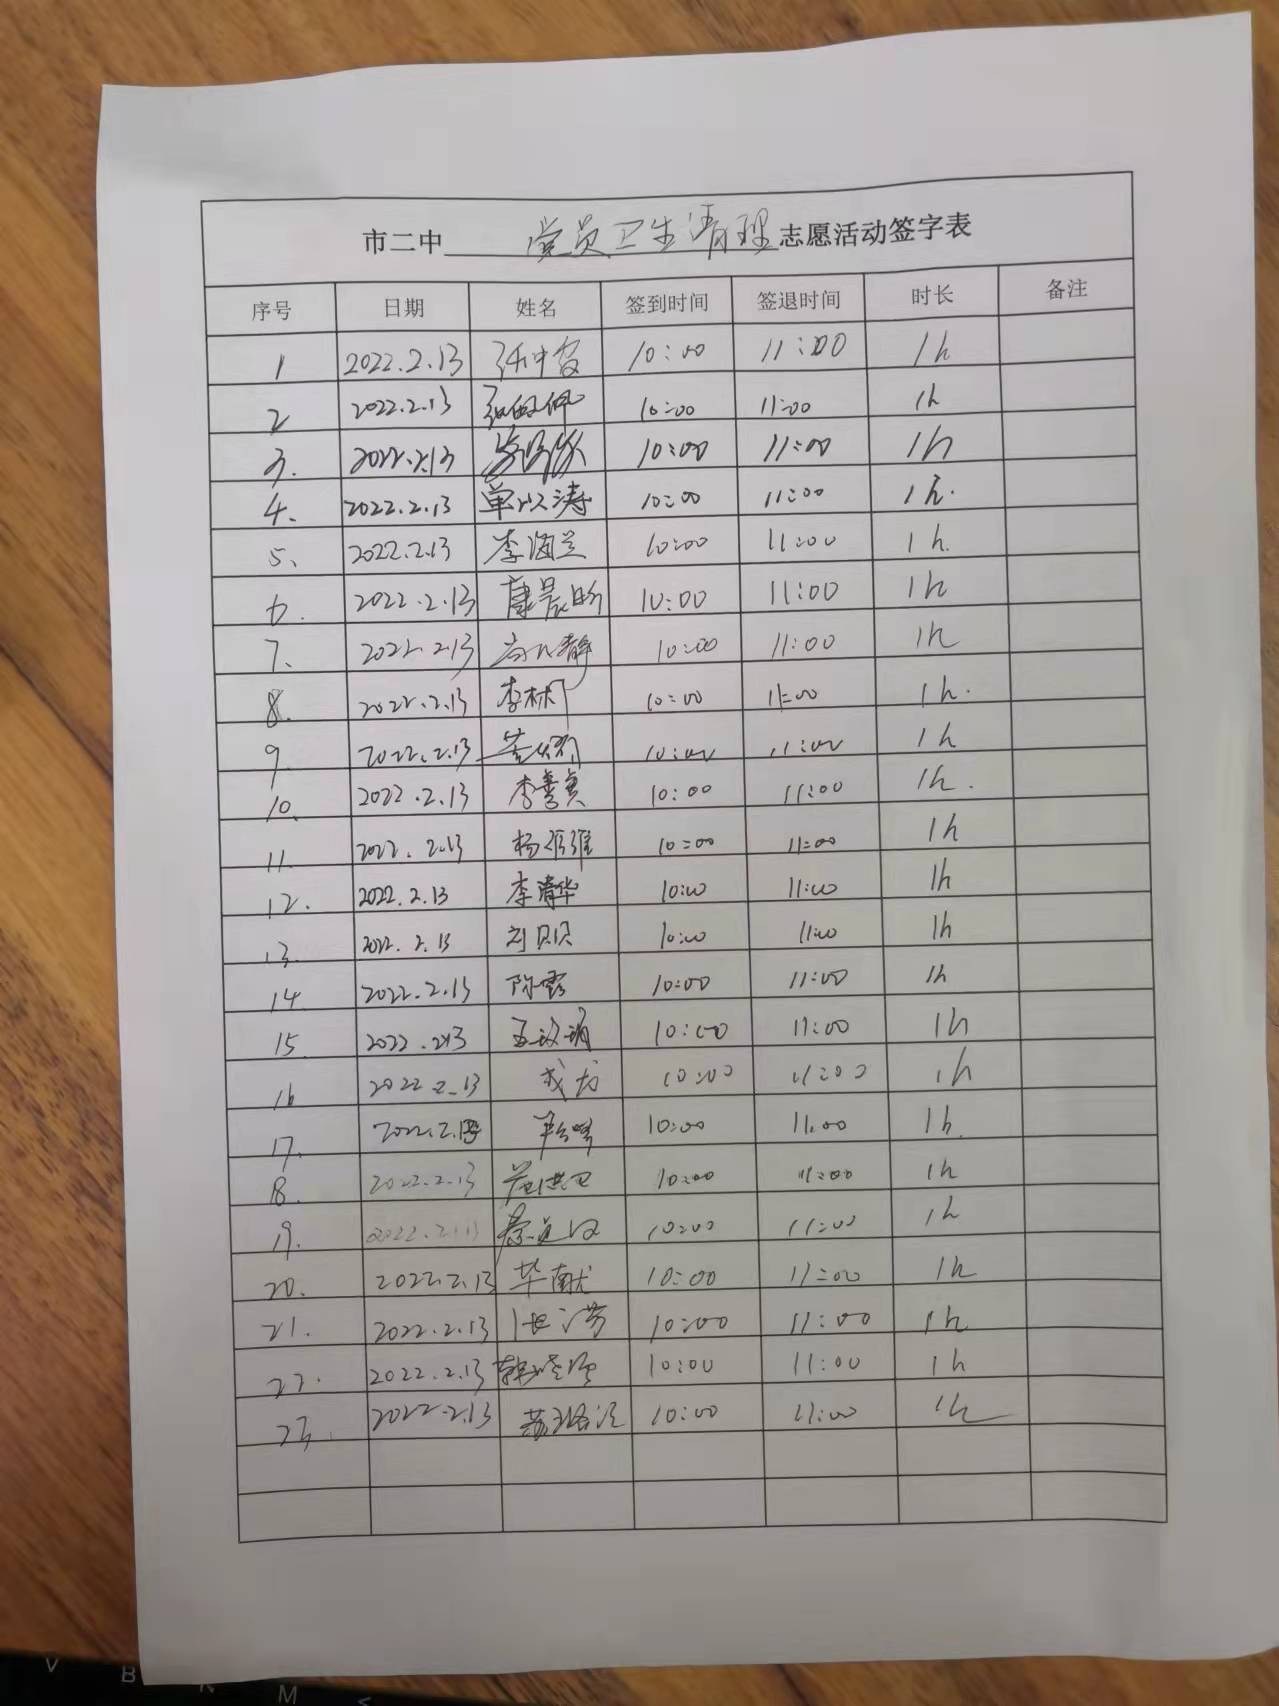 市二中 党员卫生清理 志愿活动签字表
序号 日期 姓名 签到时间 签退时间 时长 备注
1 2022.2.13 10:00 11:00 1h
2 2022.2.13 10:00 11:00 1h
3. 2022.2.13 10:00 11:00 1h
4、 2022.2.13 单以涛 10:00 11:00 1h.
5、 2022.2.13 李海兰 10:00 11:00 1h.
6. 2022.2.13 康晨昕 10:00 11:00 1h
7、 2022.2.13 10:00 11:00 1h
8. 2022.2.13 10:00 11:00 1h.
9. 2022.2.13 10:00 11:00 1h
10、 2022.2.13 李善真 10:00 11:00 1h.
11. 2022.2.13 10:00 11:00 1h
12. 2022.2.13 李清华 10:00 11:00 1h
13. 2022.2.13 刘贝贝 10:00 11:00 1h
14. 2022.2.13 陈露 10:00 11:00 1h
15. 2022.2.13 10:00 11:00 1h
16 2022.2.13 10:00 11:00 1h
17. 2022.2.13 10:00 11:00 1h.
18. 2022.2.13 10:00 11:00 1h
19. 2022.2.13 10:00 11:00 1h
20. 2022.2.13 毕献 10:00 11:00 1h
21. 2022.2.13 10:00 11:00 1h
22. 2022.2.13 10:00 11:00 1h
23. 2022.2.13 10:00 11:00 1h
V B N M <